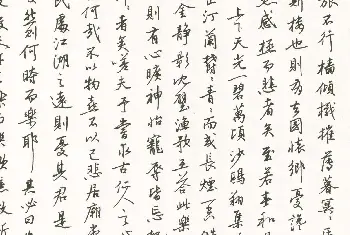 旅不行檣傾楫摧薄暮冥
則樓也則有去國懷鄉憂讒
然感極而悲者矣至若春和
上下天光一碧萬頃沙鷗翔集
芷汀蘭鬱鬱青青而或長煙一
金靜影沈璧漁歌互答此樂
則有心曠神怡寵辱皆忘
者矣嗟夫予嘗求古仁人之
何哉不以物喜不以己悲居廟堂
民處江湖之遠則憂其君是
然則何時而樂耶其必曰